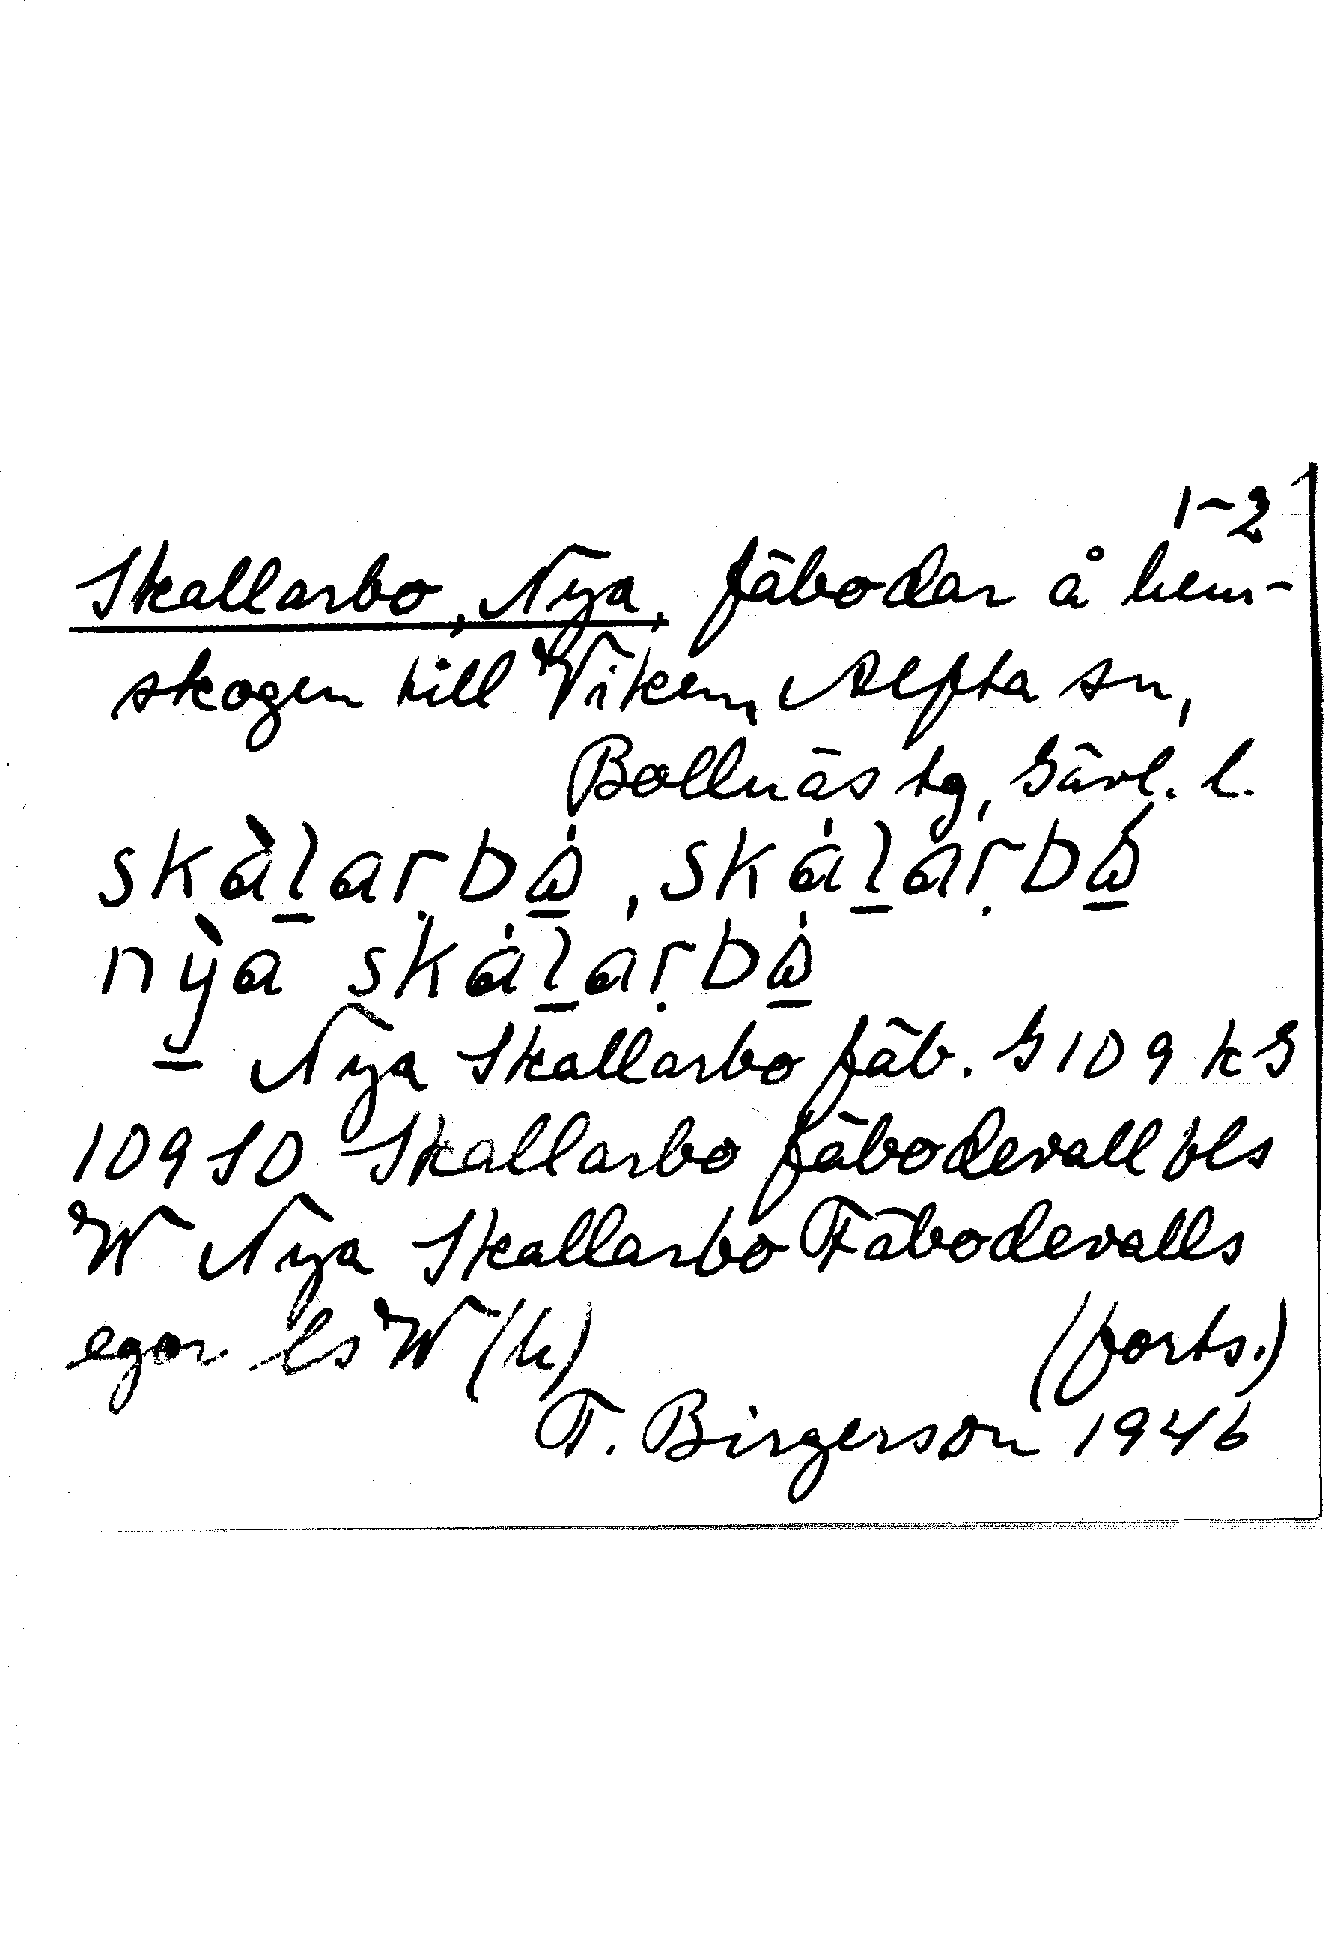 1-2
Skallarbo, Nya, fäbodar å hem-
skogen till Viken, Alfta sn,
Bollnäs tg, Gävl. l.
skàlarbå, skálàrbå
nỳa skálarbå
– Nya Skallarbo fäb. G 109 k G
109 SO Skallarbo fäbodevall bls
W Nya Skallarbo Fäbodevalls
egor ls W (k)
(forts.)
F. Birgerson 1946